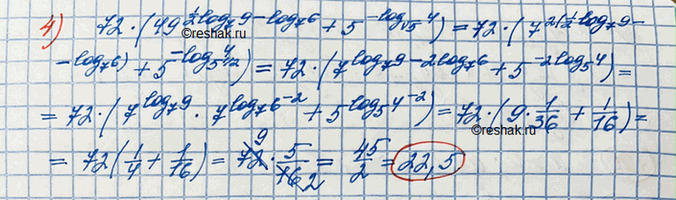 4) 72·(49^{½log₇9−log₇6} + 5^{−log_{√5}4}) = 72·(7^{2(½log₇9−
−log₇6)} + 5^{−log_{5^{1/2}}4}) = 72·(7^{log₇9−2log₇6} + 5^{−2log₅4}) =
= 72·(7^{log₇9} · 7^{log₇6^{−2}} + 5^{log₅4^{−2}}) = 72·(9·1/36 + 1/16) =
= 72(1/4 + 1/16) = 72 9 · 5/16 2 = 45/2 = 22,5
©reshak.ru
©reshak.ru